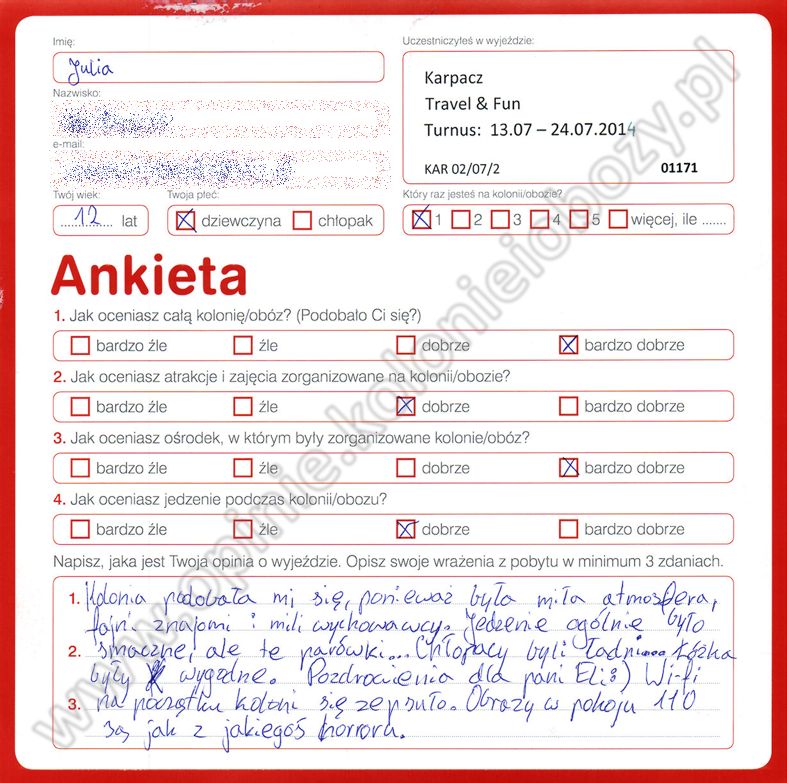 Imię:
Julia
Nazwisko:
e-mail:
Twój wiek:
12 lat
Twoja płeć:
dziewczyna chłopak
Uczestniczyłeś w wyjeździe:
Karpacz
Travel & Fun
Turnus: 13.07 – 24.07.2014
KAR 02/07/2 01171
Który raz jesteś na kolonii/obozie?
1 2 3 4 5 więcej, ile .......
Ankieta
1. Jak oceniasz całą kolonię/obóz? (Podobało Ci się?)
bardzo źle źle dobrze bardzo dobrze
2. Jak oceniasz atrakcje i zajęcia zorganizowane na kolonii/obozie?
bardzo źle źle dobrze bardzo dobrze
3. Jak oceniasz ośrodek, w którym były zorganizowane kolonie/obóz?
bardzo źle źle dobrze bardzo dobrze
4. Jak oceniasz jedzenie podczas kolonii/obozu?
bardzo źle źle dobrze bardzo dobrze
Napisz, jaka jest Twoja opinia o wyjeździe. Opisz swoje wrażenia z pobytu w minimum 3 zdaniach.
1. Kolonia podobała mi się, ponieważ była miła atmosfera,
fajni znajomi i mili wychowawcy. Jedzenie ogólnie było
2. smaczne, ale te parówki... Chłopacy byli ładni.... Łóżka
były wygodne. Pozdrowienia dla pani Eli :) Wi-fi
3. na początku koloni się zepsuło. Obrazy w pokoju 110
są jak z jakiegoś horroru.
www.opinie.kolonieiobozy.pl